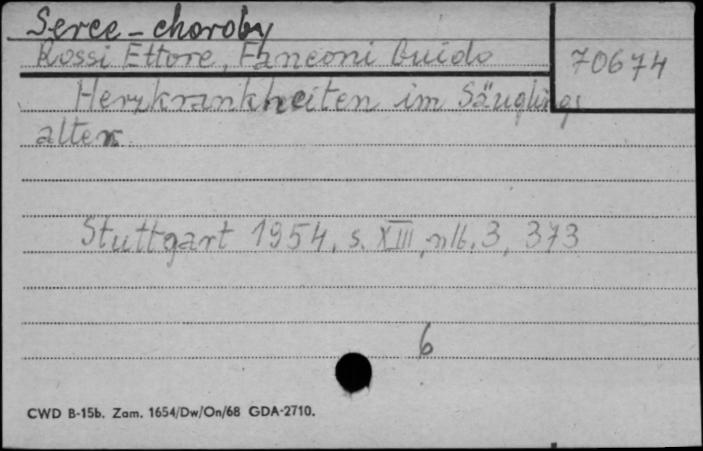 Serce - choroby
Rossi Ettore, Fanconi Guido
70674
Herzkrankheiten im Säuglings
alter
Stuttgart 1954, s. XIII, nlb. 3, 373
6
CWD B-15b. Zam. 1654/Dw/On/68 GDA-2710.